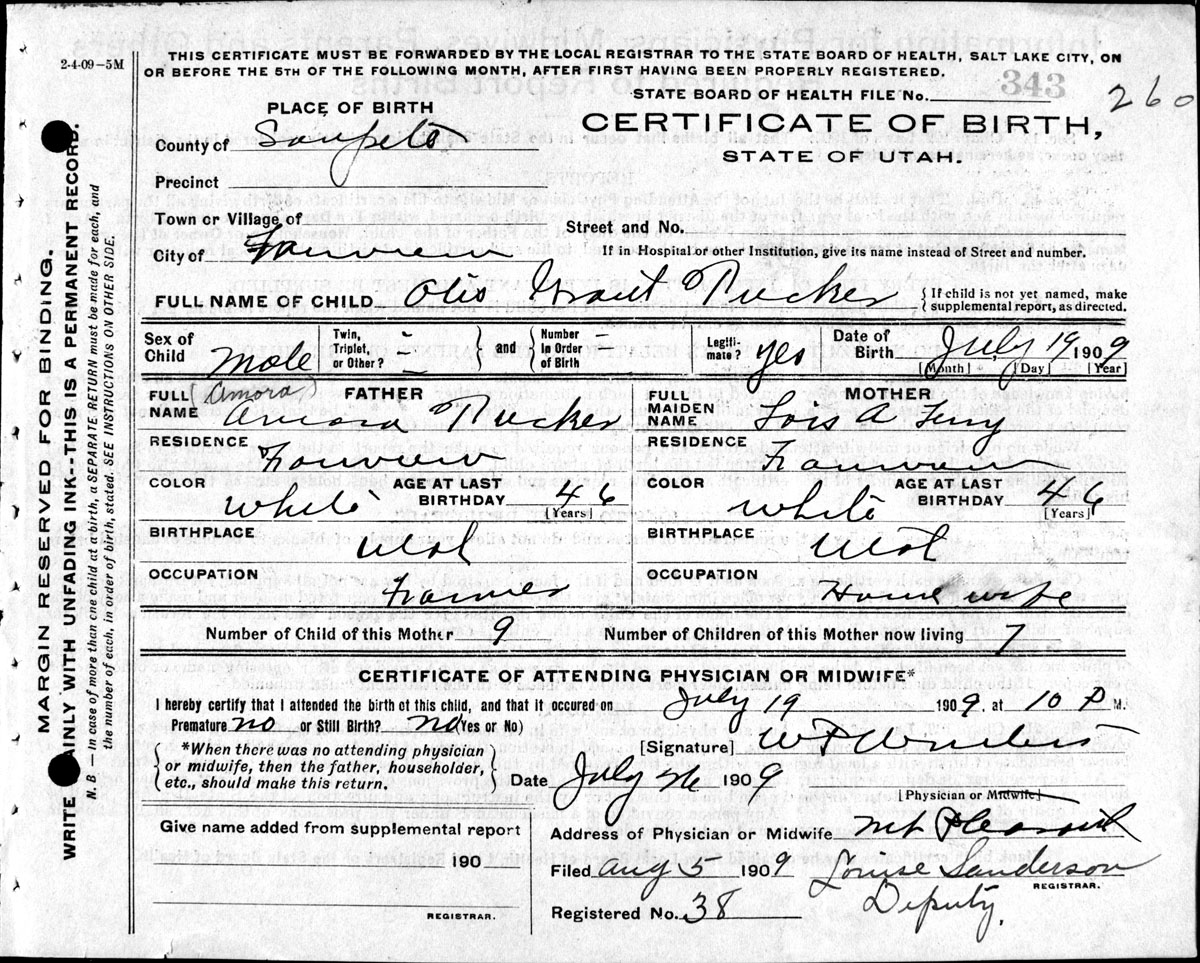 2-4-09-5M
THIS CERTIFICATE MUST BE FORWARDED BY THE LOCAL REGISTRAR TO THE STATE BOARD OF HEALTH, SALT LAKE CITY, ON
OR BEFORE THE 5TH OF THE FOLLOWING MONTH, AFTER FIRST HAVING BEEN PROPERLY REGISTERED.
STATE BOARD OF HEALTH FILE No. 343 260
PLACE OF BIRTH
CERTIFICATE OF BIRTH,
STATE OF UTAH.
County of Sanpete
Precinct
Town or Village of
Street and No.
City of Fairview
If in Hospital or other Institution, give its name instead of Street and number.
FULL NAME OF CHILD Otis Grant Tucker { If child is not yet named, make supplemental report, as directed.
Sex of Child Male Twin, Triplet, or Other? - } and { Number in Order of Birth - Legitimate? yes Date of Birth July 19 1909
[Month] [Day] [Year]
FATHER
FULL NAME (Amora) Amora Tucker
MOTHER
FULL MAIDEN NAME Lois A Terry
RESIDENCE Fairview
RESIDENCE Fairview
COLOR White AGE AT LAST BIRTHDAY 46 [Years]
COLOR White AGE AT LAST BIRTHDAY 46 [Years]
BIRTHPLACE Utah
BIRTHPLACE Utah
OCCUPATION Farmer
OCCUPATION House wife
Number of Child of this Mother 9 Number of Children of this Mother now living 7
CERTIFICATE OF ATTENDING PHYSICIAN OR MIDWIFE*
I hereby certify that I attended the birth of this child, and that it occured on July 19 1909, at 10 P M.
Premature no or Still Birth? no (Yes or No)
{ *When there was no attending physician or midwife, then the father, householder, etc., should make this return. }
[Signature]
Date July 26 1909
[Physician or Midwife]
Give name added from supplemental report
190
REGISTRAR.
Address of Physician or Midwife Mt Pleasant
Filed Aug 5 1909 Louise Sanderson
REGISTRAR.
Deputy,
Registered No. 38
MARGIN RESERVED FOR BINDING.
WRITE AINLY WITH UNFADING INK--THIS IS A PERMANENT RECORD.
N. B.—In case of more than one child at a birth, a SEPARATE RETURN must be made for each, and
the number of each, in order of birth, stated. SEE INSTRUCTIONS ON OTHER SIDE.